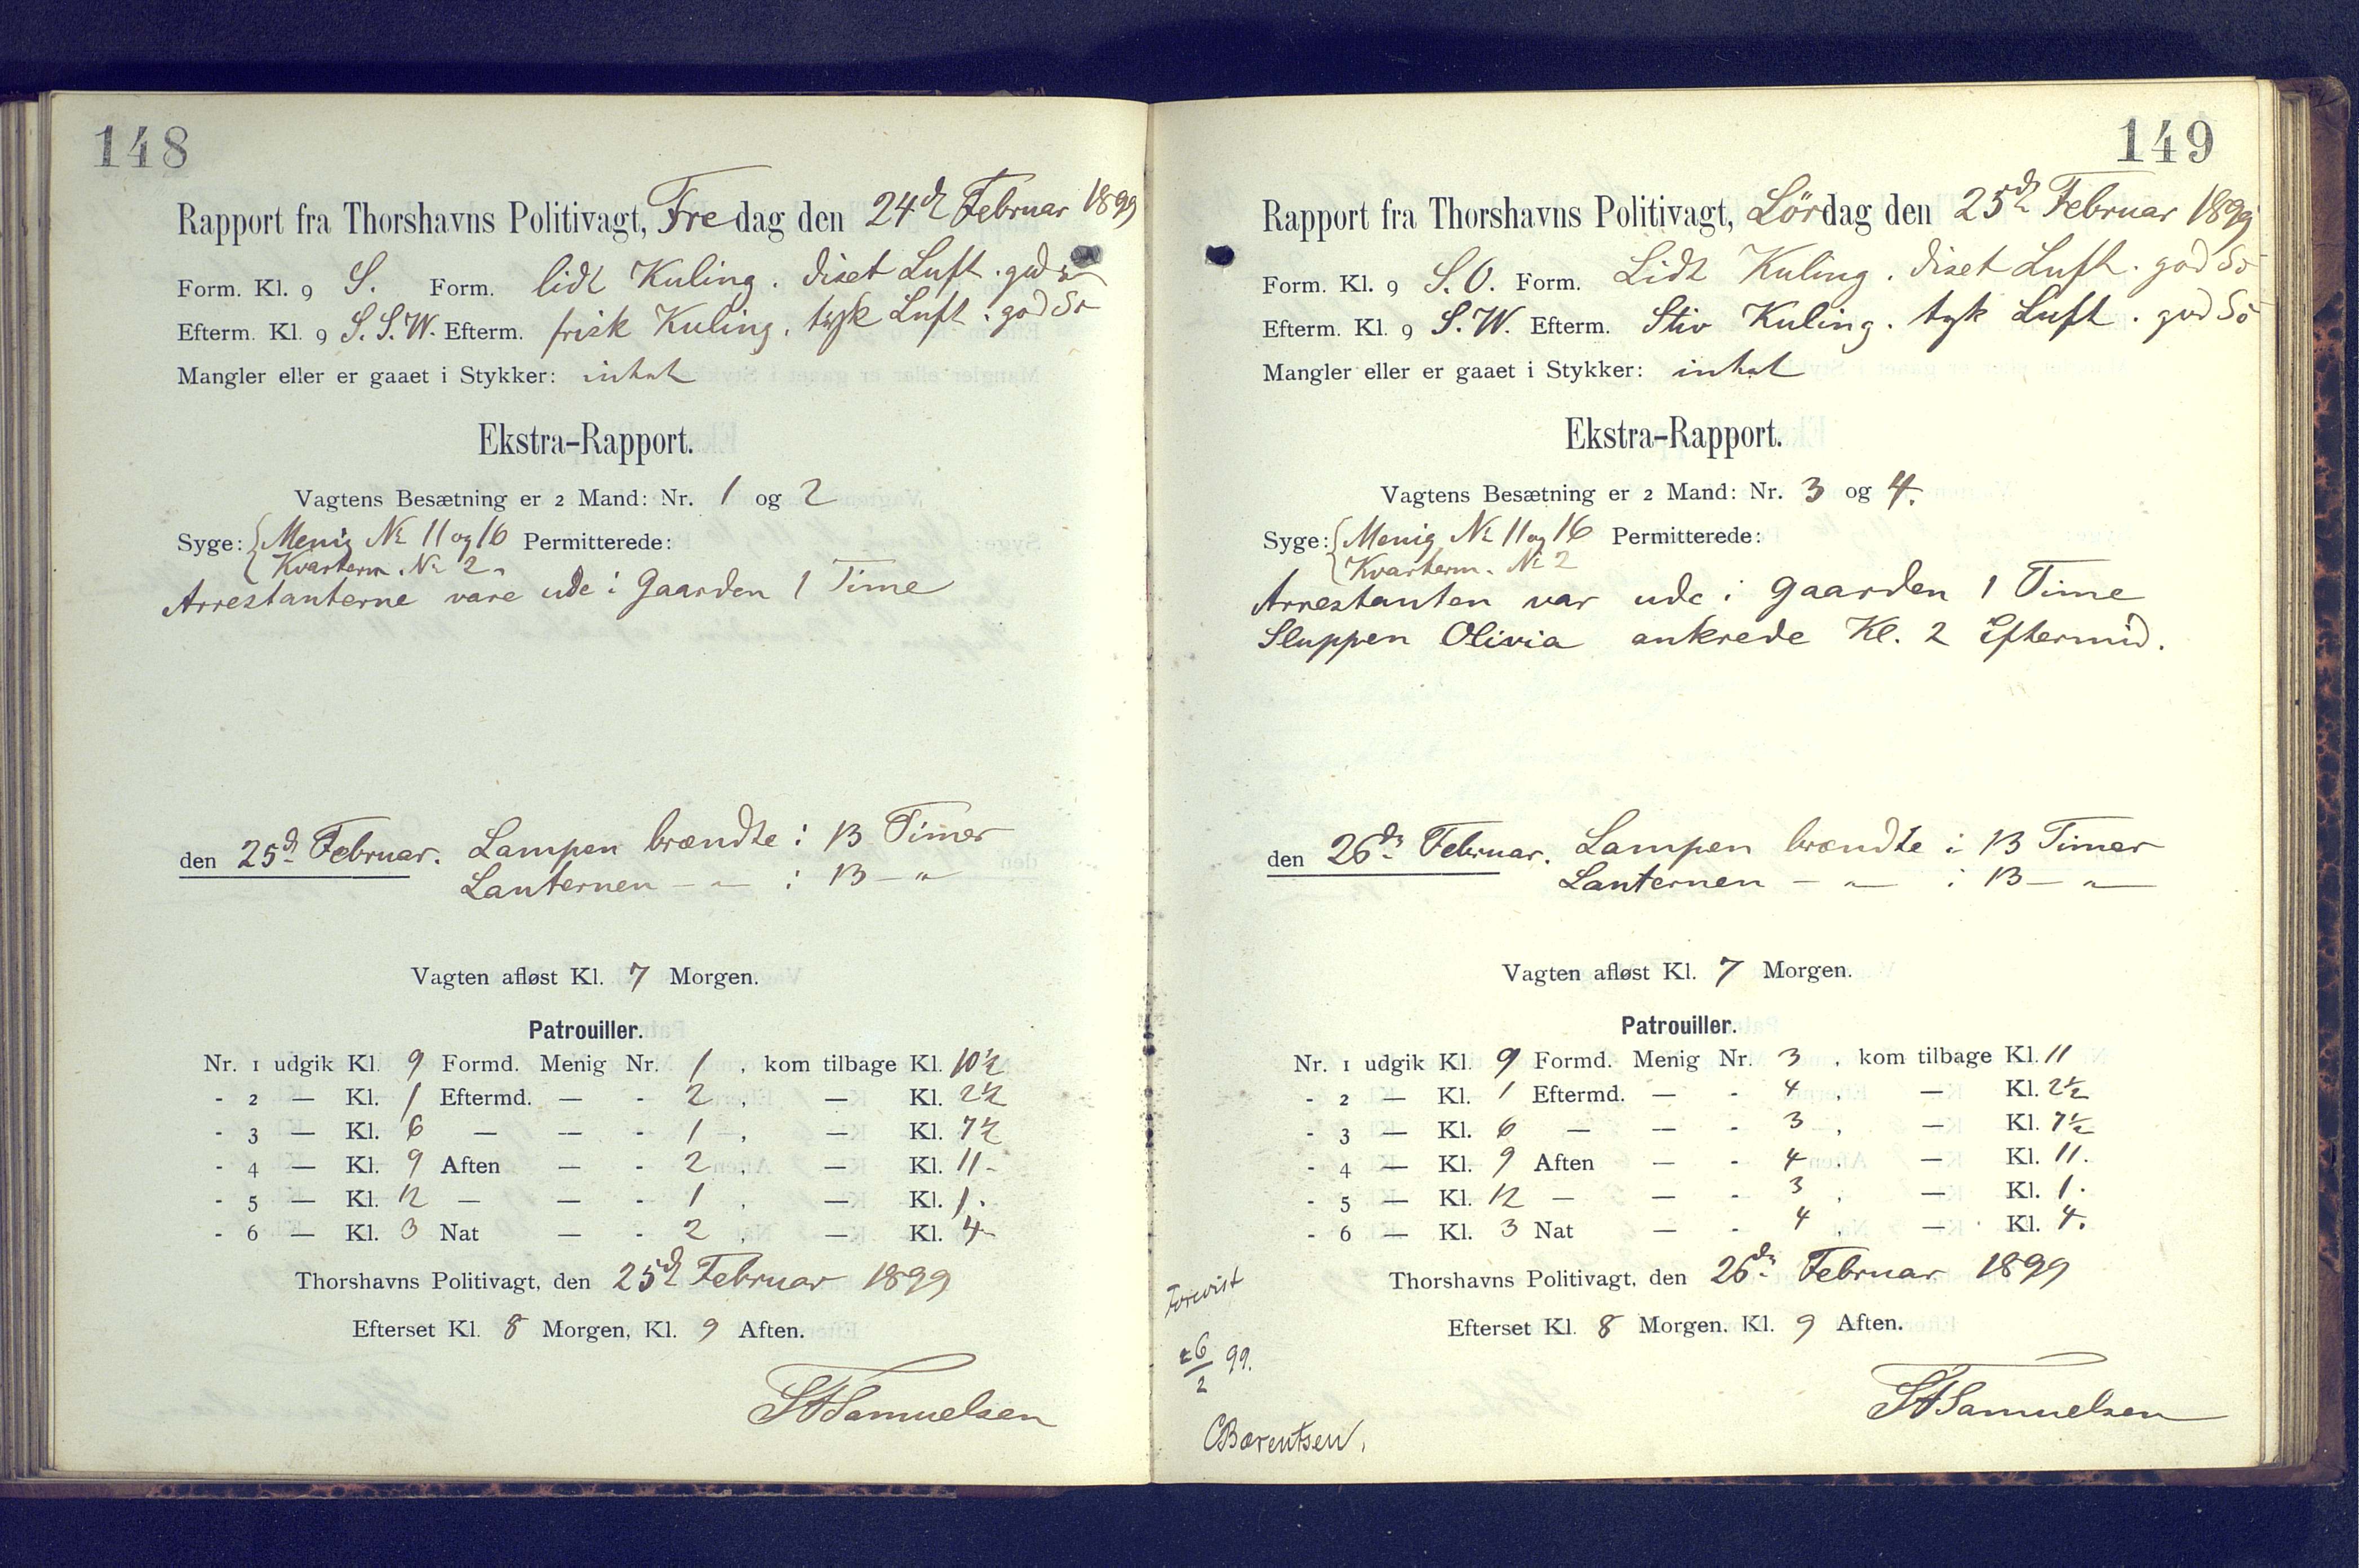 148
Rapport fra Thorshavns Politivagt, Fredag den 24d Februar 1899
Form. Kl. 9 S. Form. lidt Kuling. diset Luft. god
Efterm. Kl. 9 S.S.W. Efterm. frisk Kuling. tyk Luft. god Sö
Mangler eller er gaaet i Stykker: intet
Ekstra-Rapport.
Vagtens Besætning er 2 Mand: Nr. 1 og 2
Syge: Menig No 11 og 16 Permitterede:
Kvarterm. No 2.
Arrestanterne vare ude i Gaarden 1 Time
den 25d Februar. Lampen brændte i 13 Timer
Lanternen — " — i 13 — "
Vagten afløst Kl. 7 Morgen.
Patrouiller.
Nr. 1 udgik Kl. 9 Formd. Menig Nr. 1, kom tilbage Kl. 10½
- 2 — Kl. 1 Eftermd. — - 2, — Kl. 2½
- 3 — Kl. 6 — — - 1, — Kl. 7½
- 4 — Kl. 9 Aften — - 2, — Kl. 11-
- 5 — Kl. 12 — — - 1, — Kl. 1.
- 6 — Kl. 3 Nat — - 2, — Kl. 4-
Thorshavns Politivagt, den 25d Februar 1899
Efterset Kl. 8 Morgen, Kl. 9 Aften.
Samuelsen
149
Rapport fra Thorshavns Politivagt, Lördag den 25d Februar 1899
Form. Kl. 9 S.O. Form. Lidt Kuling. diset Luft. god Sö
Efterm. Kl. 9 S.W. Efterm. Stiv Kuling. tyk Luft. god Sö
Mangler eller er gaaet i Stykker: intet
Ekstra-Rapport.
Vagtens Besætning er 2 Mand: Nr. 3 og 4.
Syge: Menig No 11 og 16 Permitterede:
Kvarterm. No 2
Arrestanten var ude i Gaarden 1 Time
Sluppen Olivia ankrede Kl. 2 Eftermid.
den 26d Februar. Lampen brændte i 13 Timer
Lanternen — " — i 13 — " —
Vagten afløst Kl. 7 Morgen.
Patrouiller.
Nr. 1 udgik Kl. 9 Formd. Menig Nr. 3, kom tilbage Kl. 11
- 2 — Kl. 1 Eftermd. — - 4, — Kl. 2½
- 3 — Kl. 6 — — - 3, — Kl. 7½
- 4 — Kl. 9 Aften — - 4, — Kl. 11.
- 5 — Kl. 12 — — - 3, — Kl. 1.
- 6 — Kl. 3 Nat — - 4, — Kl. 4.
Thorshavns Politivagt, den 26d Februar 1899
Efterset Kl. 8 Morgen, Kl. 9 Aften.
Samuelsen
Forevist
26/2 99.
CBærentsen.